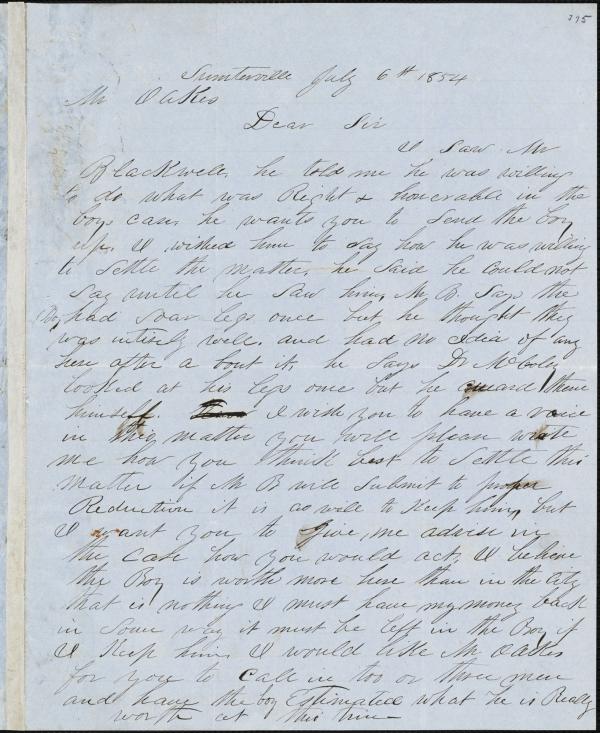 375
Sumterville July 6th 1854
Mr Oakes
Dear Sir
I Saw Mr
Blackwell, he told me he was willing
to do what was Right & honorable in the
boys case, he wants you to Send the boy
up. I wished him to Say how he was willing
to Settle the matter, he Said he could not
Say until he Saw him, Mr B. Says the
Boy had Soar legs once but he thought they
was intirely well. and had no Idia of any
here after a bout it. he Says Dr
looked at his legs once but he cuward them
himself. I wish you to have a voice
in this matter you will please wrote
me how you think best to Settle this
Matter if Mr B will Submit to proper
Reduction it is as well to Keep him, but
I want you to Give me advise in
the Case how you would act, I believe
the Boy is worth more here than in the City
that is nothing I must have my money back
in Some way it must be left in the Boy if
I Keep him. I would like Mr Oakes
for you to Call in too or three men
and have the boy Estimated what he is Really
worth at this time